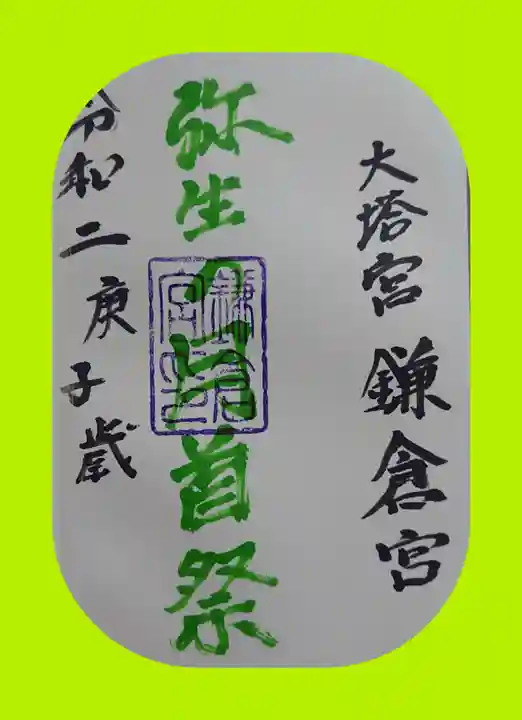 大塔宮 鎌倉宮
弥生の月首祭
鎌倉
宮印
令和二庚子歳